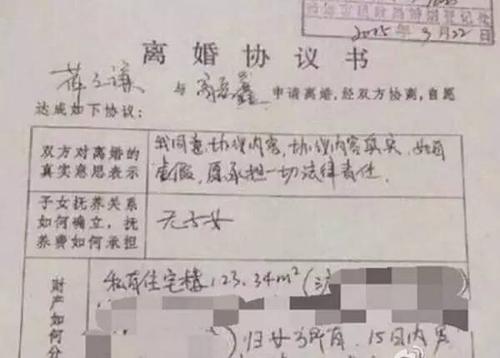 2015年3月22日
离婚协议书
与 申请离婚,经双方协商,自愿
达成如下协议:
双方对离婚的
真实意思表示
我同意协议内容,协议内容真实,如有
虚假,愿承担一切法律责任.
子女抚养关系
如何确立,抚
养费如何承担
无子女
财产如何分
私有住宅楼123.34m²(
归女方所有,15日内男